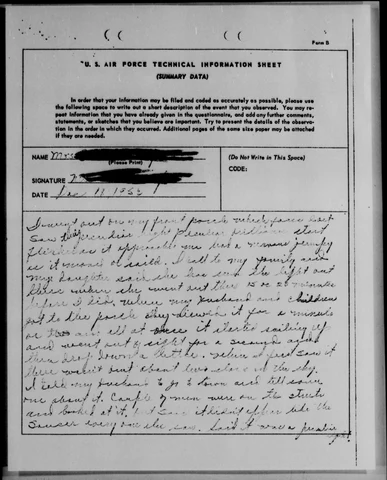 Form B
U. S. AIR FORCE TECHNICAL INFORMATION SHEET
(SUMMARY DATA)
In order that your information may be filed and coded as accurately as possible, please use
the following space to write out a short description of the event that you observed. You may re-
peat information that you have already given in the questionnaire, and add any further comments,
statements, or sketches that you believe are important. Try to present the details of the observa-
tion in the order in which they occurred. Additional pages of the same size paper may be attached
if they are needed.
NAME Mrs
(Please Print)
SIGNATURE
DATE Dec
(Do Not Write in This Space)
CODE:
I went out on my front porch which faces East
Saw this peculiar light
as it appeared
as it moved or sailed. I call to my family and
my daughter said she has seen the light out
there when she went out there 15 or 20 minutes
before I did, when my husband and children
got to the porch they viewed it for a minute
or two and all at once it started sailing up
and went out of sight for a second again
then drop down a little. When I first saw it
there wasn't but about two stars in the sky.
I told my husband to go to town and tell some
one about it. Couple of men were on the street
and looked at it, but said it didn't appear like the
Saucer every one else saw. Said it was a peculiar
light.